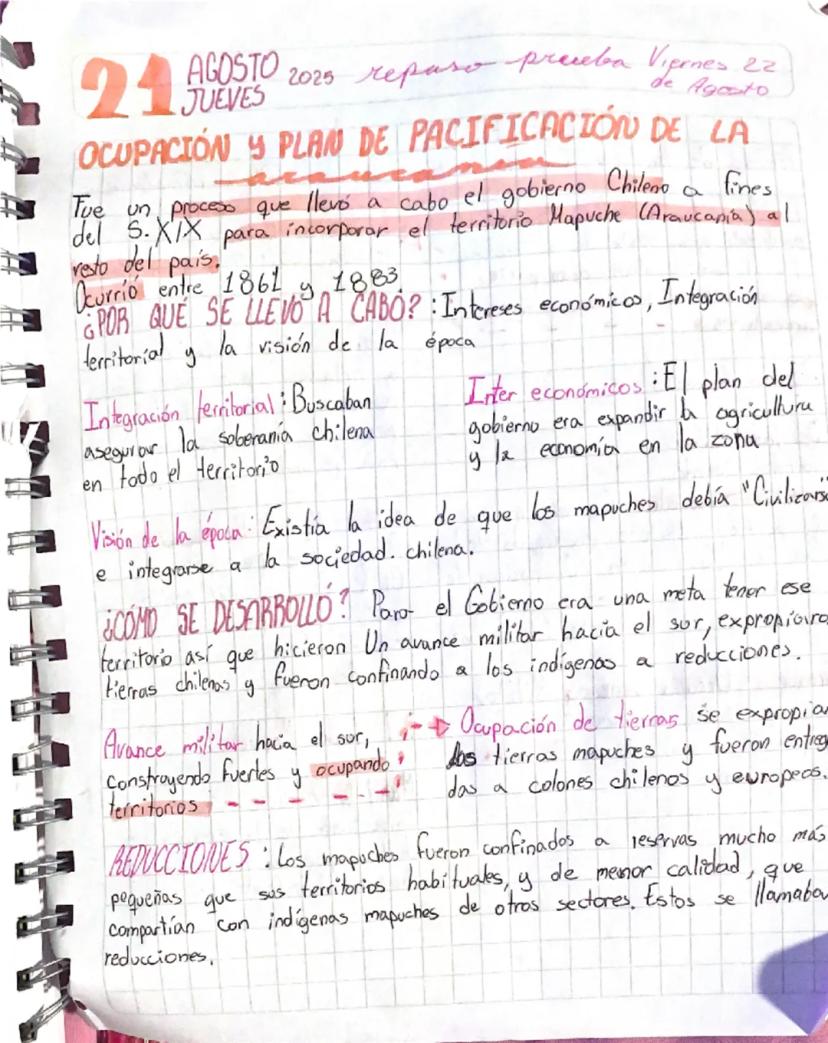 21 AGOSTO JUEVES 2025 repaso prueba Viernes 22 de Agosto
OCUPACIÓN y PLAN DE PACIFICACIÓN DE LA
araucanía
Fue un proceso que llevó a cabo el gobierno Chileno a fines
del S. XIX para incorporar el territorio Mapuche (Araucanía) al
resto del país.
Ocurrió entre 1861 y 1883.
¿POR QUÉ SE LLEVÓ A CABÓ? : Intereses económicos, Integración
territorial y la visión de la época
Integración territorial : Buscaban
asegurar la soberanía chilena
en todo el territorio
Inter económicos : El plan del
gobierno era expandir la agricultura
y la economía en la zona
Visión de la época : Existía la idea de que los mapuches debía "Civilizars
e integrarse a la sociedad. chilena.
¿CÓMO SE DESARROLLÓ? Para el Gobierno era una meta tener ese
territorio así que hicieron Un avance militar hacia el sur, expropiaro
tierras chilenas y fueron confinando a los indígenas a reducciones.
Avance militar hacia el sur,
construyendo fuertes y ocupando
territorios
Ocupación de tierras se expropiar
las tierras mapuches y fueron entreg
das a colones chilenos y europeos.
REDUCCIONES : Los mapuches fueron confinados a reservas mucho más
pequeñas que sus territorios habituales, y de menor calidad, que
compartían con indígenas mapuches de otros sectores. Estos se llamaba
reducciones.